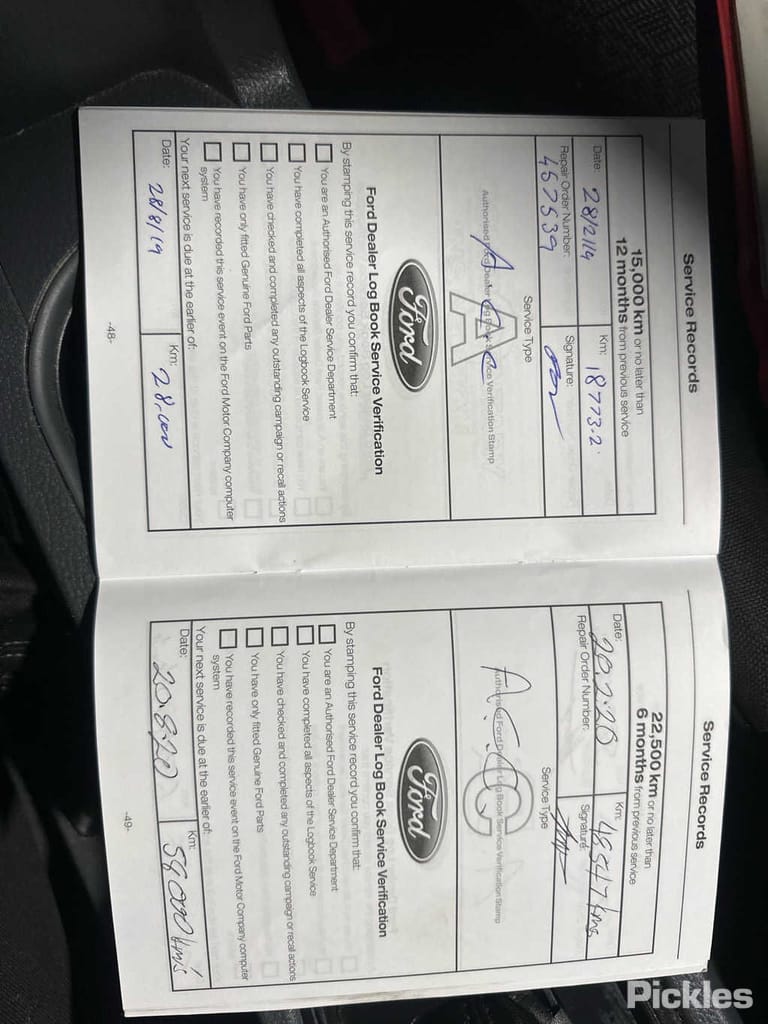 Service Records
15,000 km or no later than
12 months from previous service
Date: 28/2/19
Km: 18773.2
Repair Order Number:
457539
Signature:
Service Type
A
Authorised Ford Dealer Log Book Service Verification Stamp
Ford
Ford Dealer Log Book Service Verification
By stamping this service record you confirm that:
You are an Authorised Ford Dealer Service Department
You have completed all aspects of the Logbook Service
You have checked and completed any outstanding campaign or recall actions
You have only fitted Genuine Ford Parts
You have recorded this service event on the Ford Motor Company computer
system
Your next service is due at the earlier of:
Date: 28/8/19
Km: 28,000
-48-
Service Records
22,500 km or no later than
6 months from previous service
Date: 20.2.20
Km: 48547 kms
Repair Order Number:
Signature:
Service Type
C
Authorised Ford Dealer Log Book Service Verification Stamp
Ford
Ford Dealer Log Book Service Verification
By stamping this service record you confirm that:
You are an Authorised Ford Dealer Service Department
You have completed all aspects of the Logbook Service
You have checked and completed any outstanding campaign or recall actions
You have only fitted Genuine Ford Parts
You have recorded this service event on the Ford Motor Company computer
system
Your next service is due at the earlier of:
Date: 20.8.20
Km: 58,000 km's
-49-
Pickles